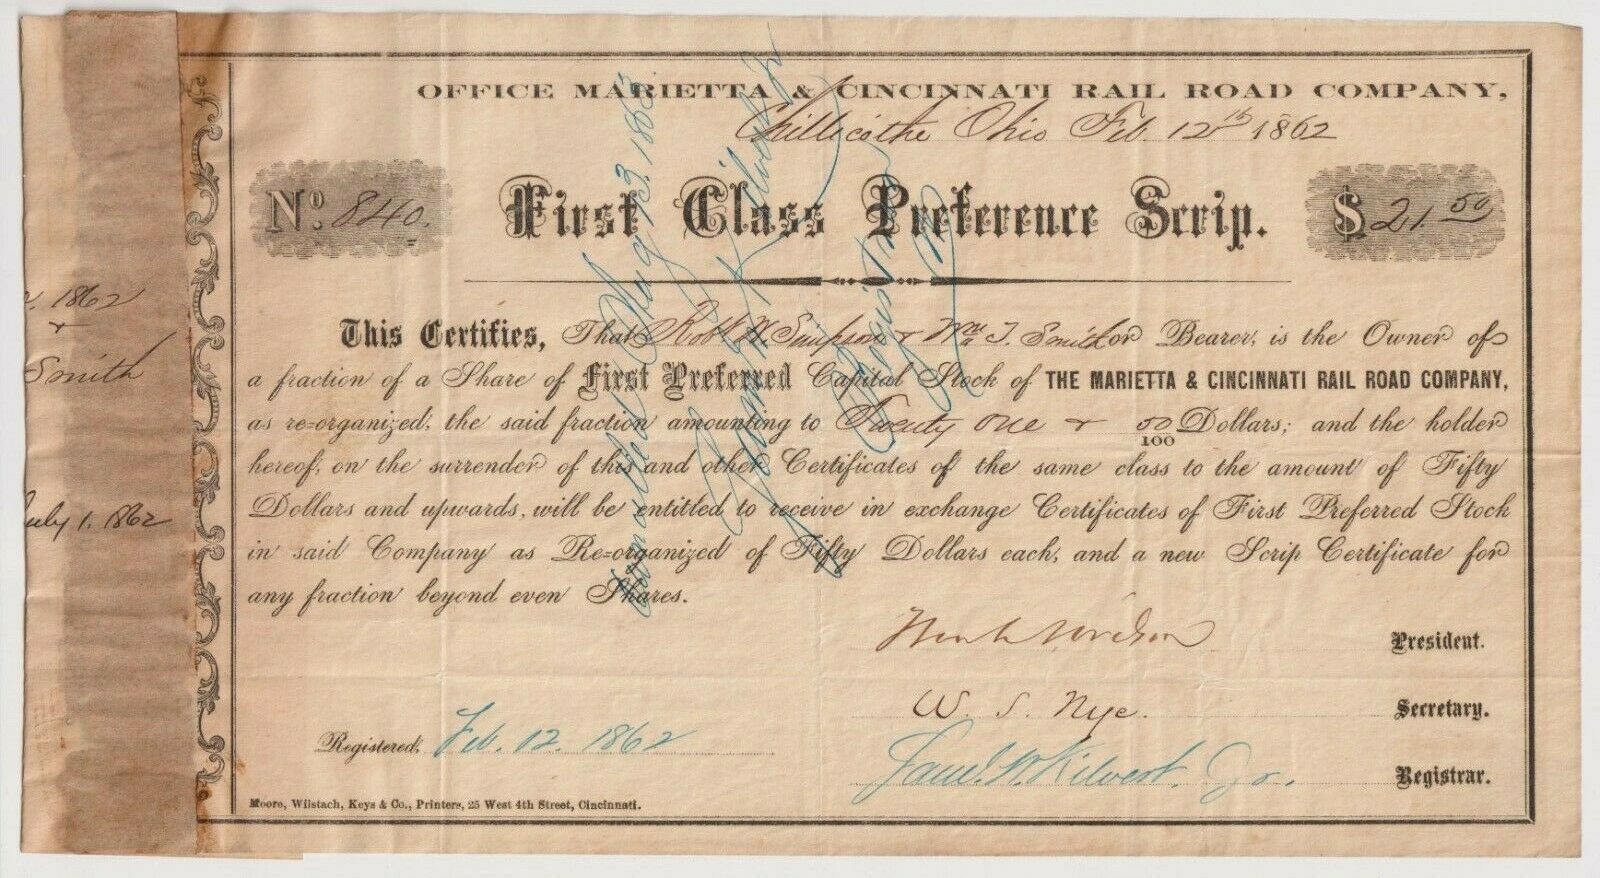 OFFICE MARIETTA & CINCINNATI RAIL ROAD COMPANY,
Chillicothe Ohio Feb. 12th 1862
No. 840.
First Class Preference Scrip.
$ 21.50
This Certifies, That Robt. W. Simpson & Wm. J. Smith or Bearer, is the Owner of
a fraction of a Share of First Preferred Capital Stock of THE MARIETTA & CINCINNATI RAIL ROAD COMPANY,
as re=organized, the said fraction amounting to Twenty one & 50/100 Dollars; and the holder
hereof, on the surrender of this and other Certificates of the same class to the amount of Fifty
Dollars and upwards, will be entitled to receive in exchange Certificates of First Preferred Stock
in said Company as Re=organized of Fifty Dollars each, and a new Scrip Certificate for
any fraction beyond even Shares.
President.
W. S. Nye. Secretary.
Registered, Feb. 12. 1862
Saml. W. Kilvert. Jr. Registrar.
Moore, Wilstach, Keys & Co., Printers, 25 West 4th Street, Cincinnati.
1862
&
Smith
July 1. 1862
Cancelled Aug 13. 1863
Saml W Kilvert Jr
Registrar